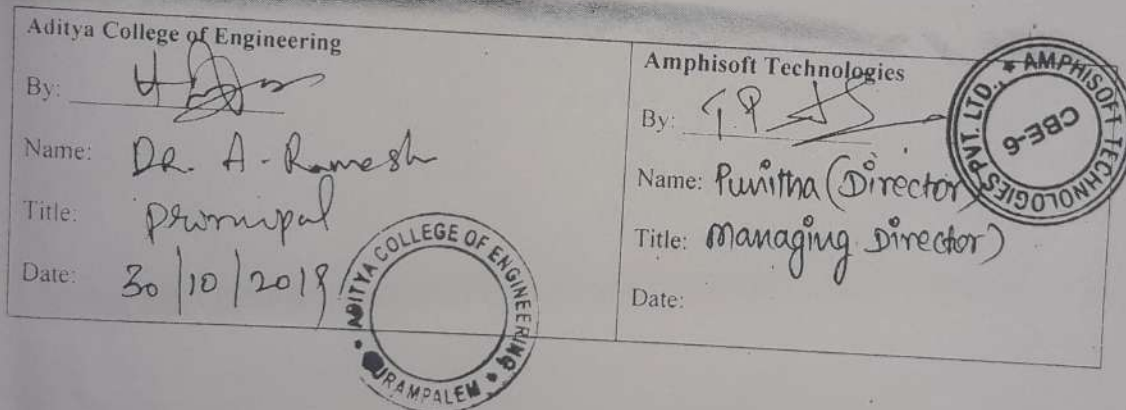 Aditya College of Engineering
By:
Name: DR. A. Ramesh
Title: principal
Date: 30/10/2019
ADITYA COLLEGE OF ENGINEERING
SURAMPALEM
Amphisoft Technologies
By:
Name: Punitha (Director
Title: Managing Director)
Date:
AMPHISOFT TECHNOLOGIES PVT. LTD.,
CBE-6